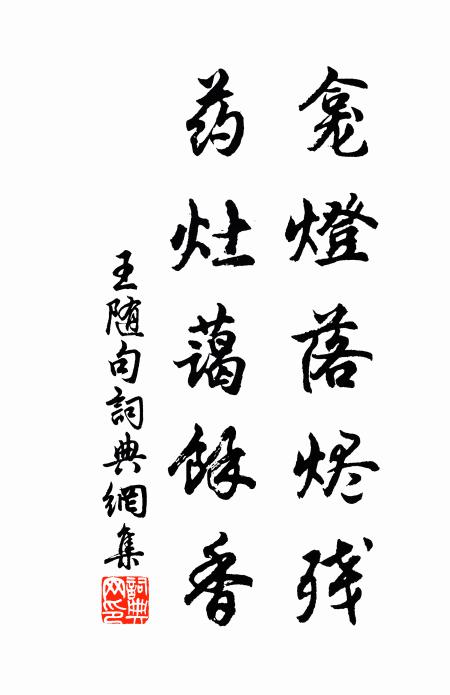 龛燈落烬残
药灶藹餘香
王随句詞典網集
詞典网印